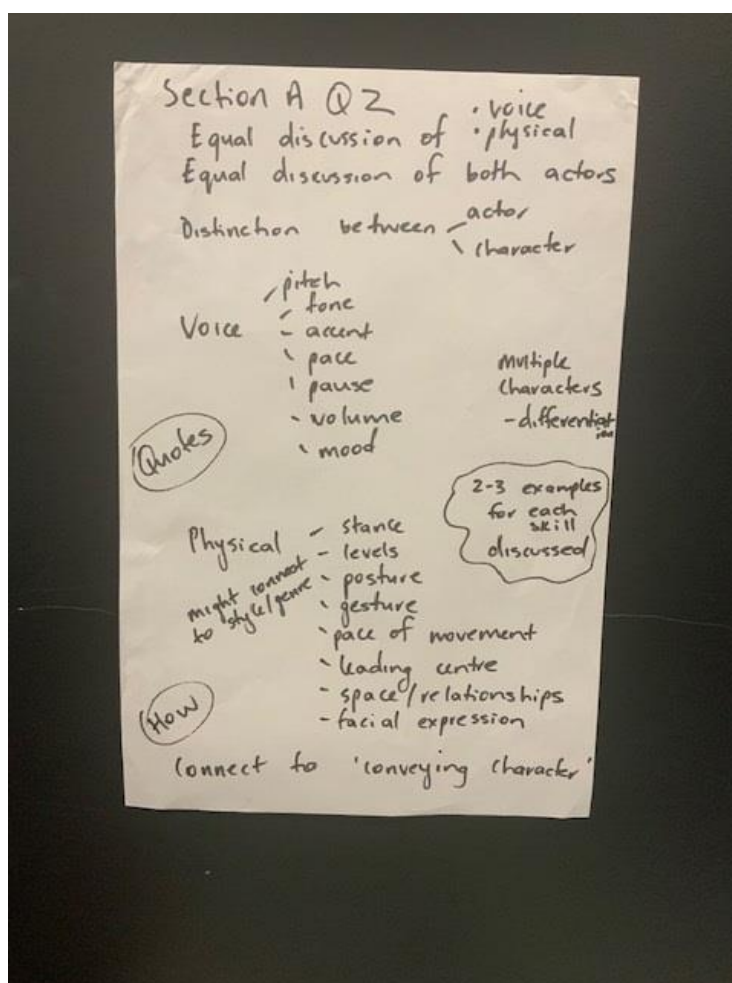 Section A Q2
Equal discussion of • voice
• physical
Equal discussion of both actors
Distinction between - actor
\ character
Voice
- pitch
- tone
- accent
- pace
- pause
- volume
- mood
Multiple
characters
- differentiation
Quotes
2-3 examples
for each
skill
discussed
Physical
might connect
to style/genre
- stance
- levels
- posture
- gesture
- pace of movement
- leading centre
- space/relationships
- facial expression
How
Connect to 'conveying character'